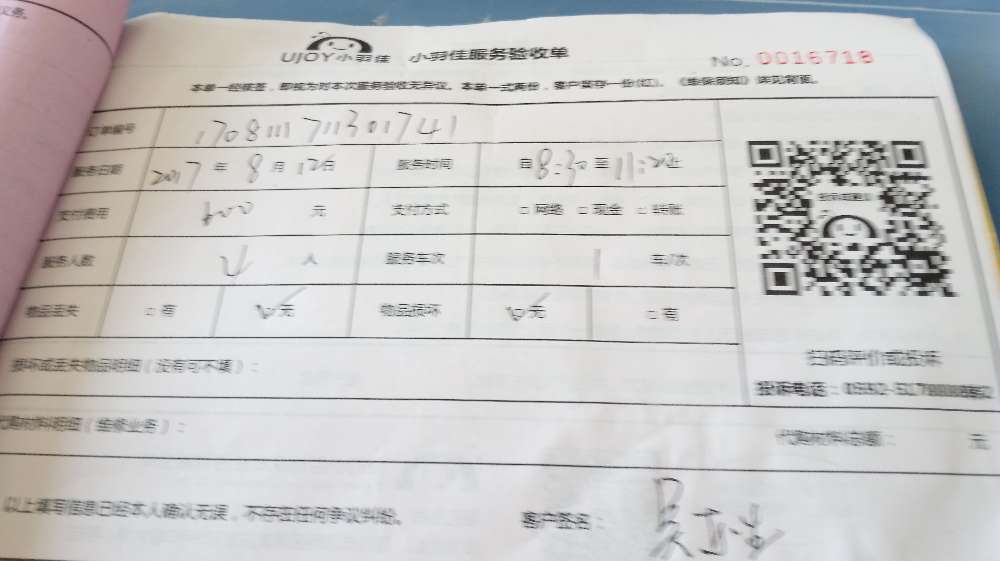 务。
UJOY小羽佳 小羽佳服务验收单 No. 0016718
本单一经核签，即视为对本次服务验收无异议。本单一式两份，客户留存一份(红)。《维保须知》详见背面。
订单编号 170811171301741
服务日期 2017 年 8 月 12日 服务时间 自 8:30 至 11:20止
支付费用 600 元 支付方式 □ 网络 □ 现金 □ 转账
服务人数 4 人 服务车次 1 车/次
物品丢失 □ 有 □ 无 物品损坏 □ 无 □ 有
损坏或丢失物品明细（没有可不填）：
扫码评价或投诉
投诉电话：0592-5178888转2
代购材料明细（维修业务）： 代购材料总额： 元
以上填写信息已经本人确认无误，不存在任何争议纠纷。 客户签名：吴